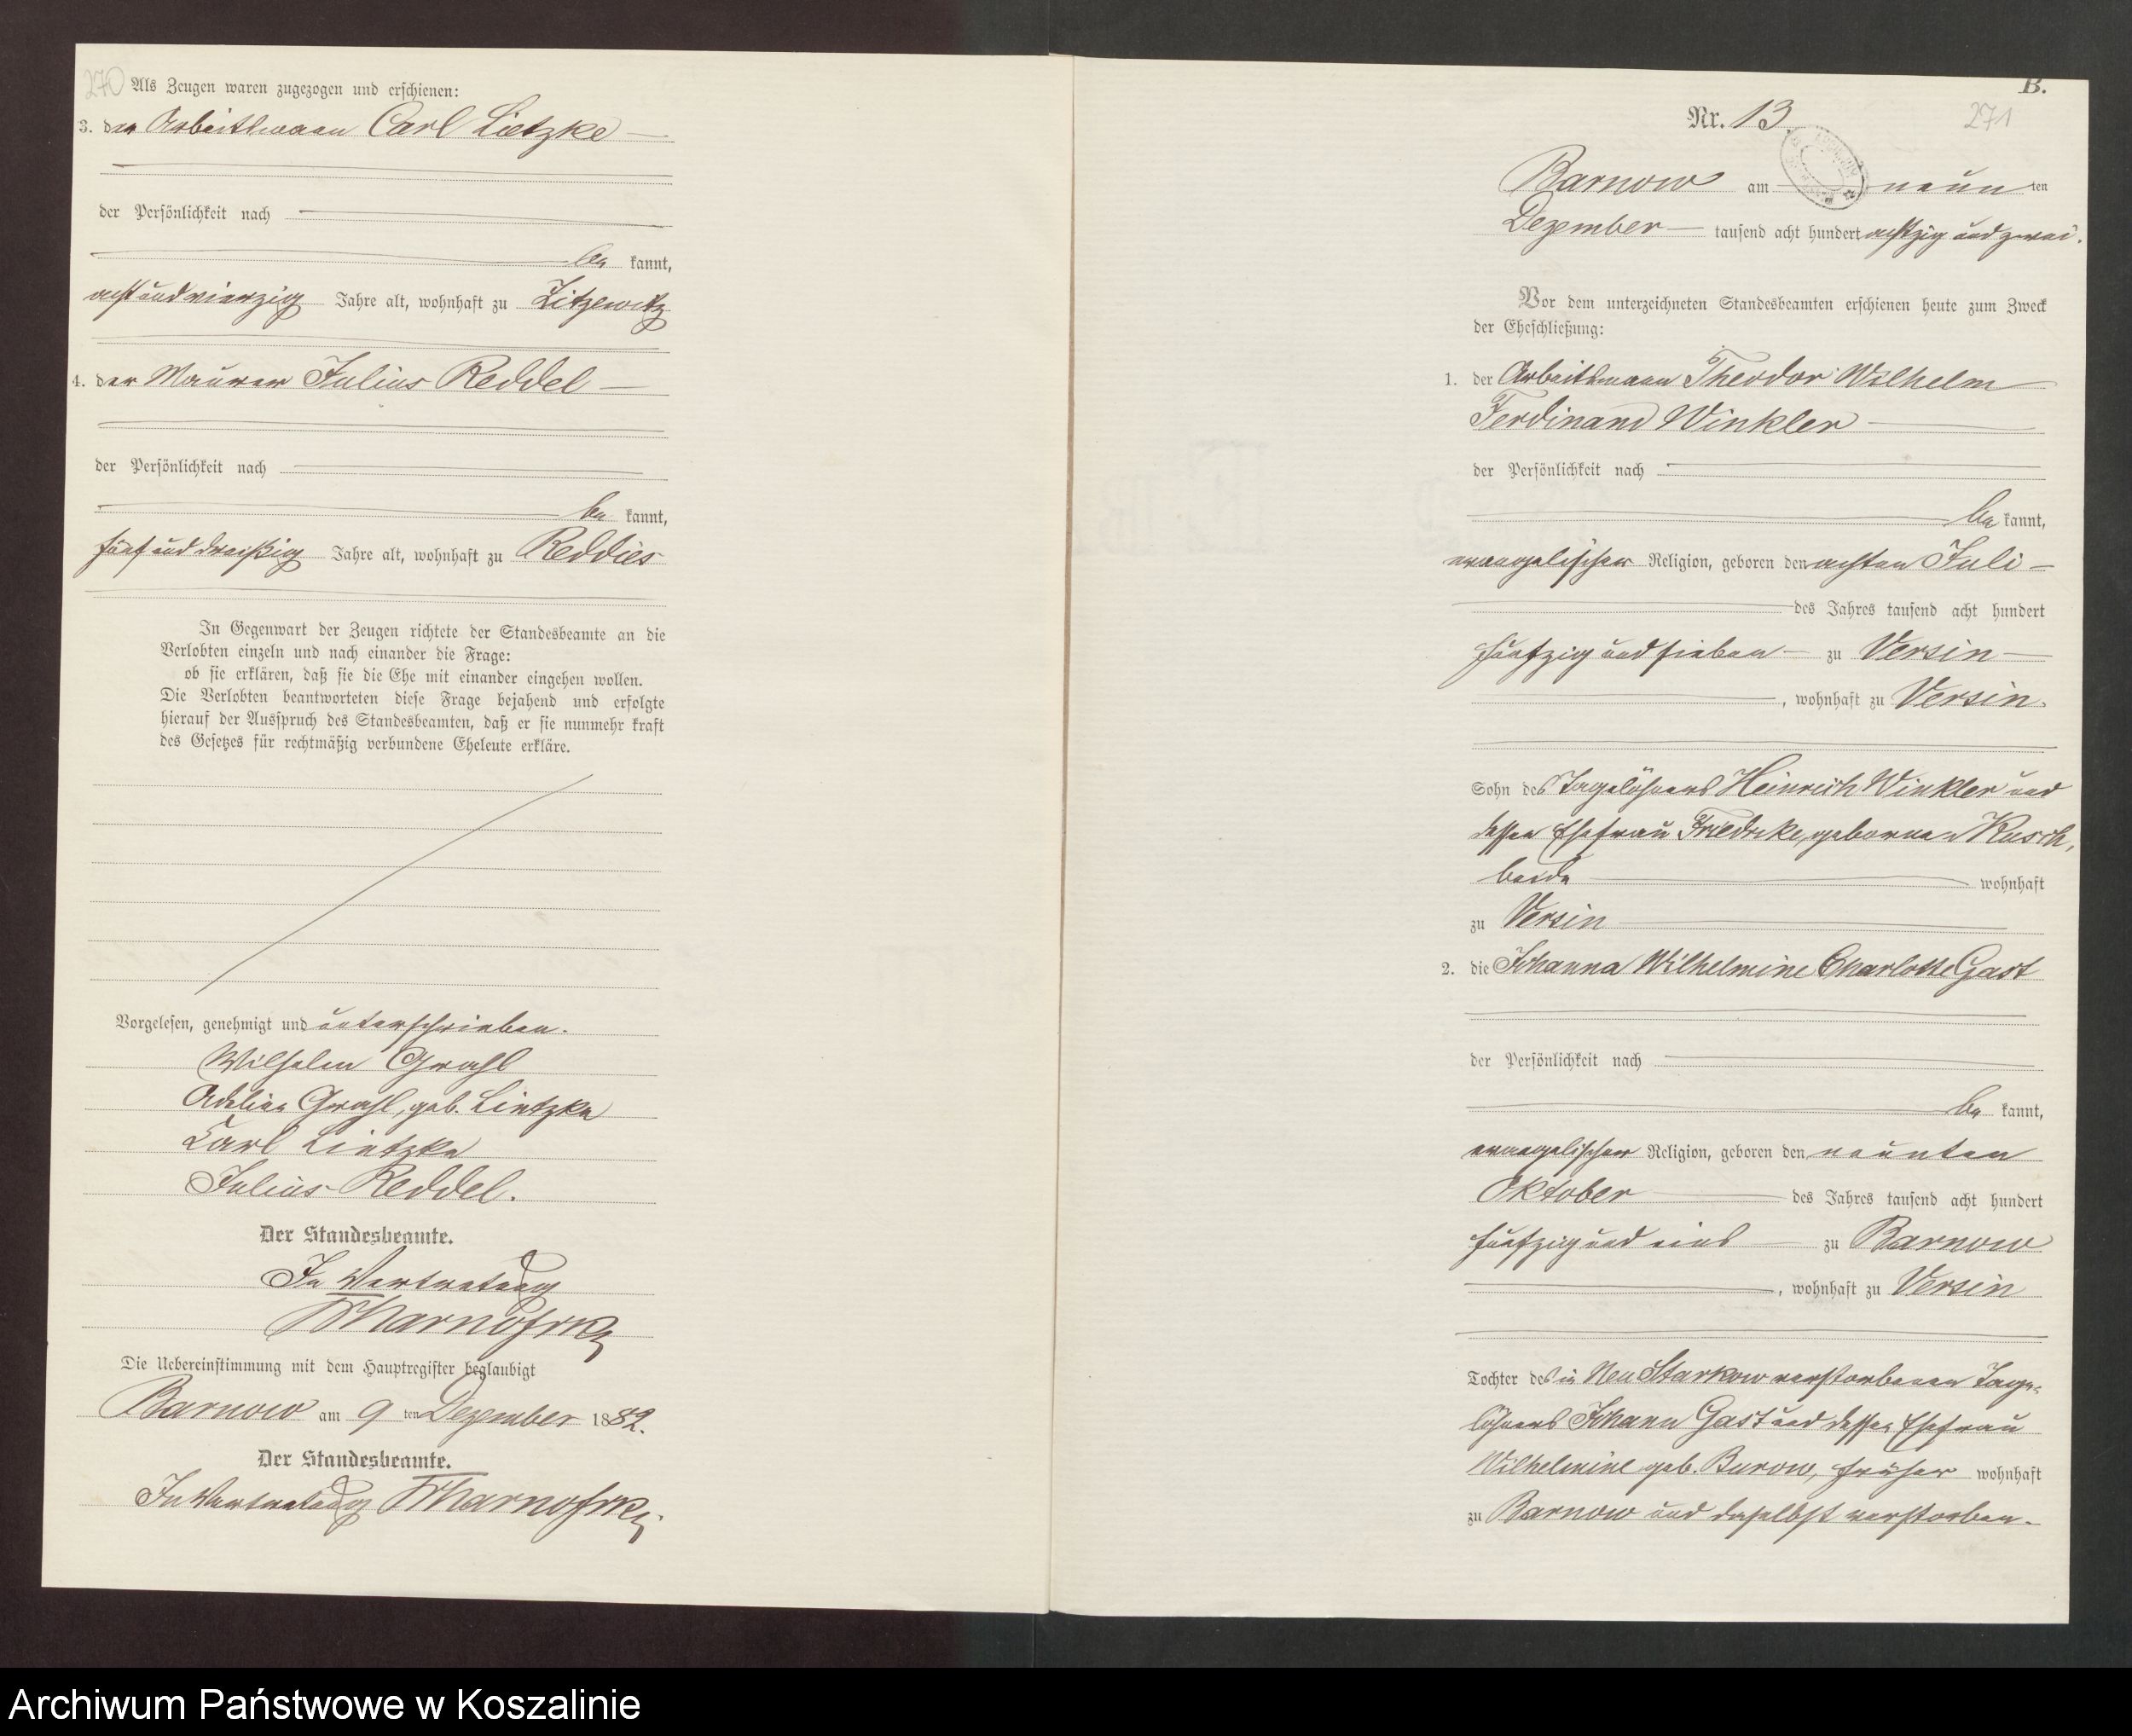 270
Als Zeugen waren zugezogen und erschienen:
3. der Arbeitsmann Carl Lietzke
der Persönlichkeit nach
be kannt,
achtundvierzig Jahre alt, wohnhaft zu Zitzewitz
4. der Maurer Julius Reddel
der Persönlichkeit nach
be kannt,
fünfunddreißig Jahre alt, wohnhaft zu Reddies
In Gegenwart der Zeugen richtete der Standesbeamte an die
Verlobten einzeln und nach einander die Frage:
ob sie erklären, daß sie die Ehe mit einander eingehen wollen.
Die Verlobten beantworteten diese Frage bejahend und erfolgte
hierauf der Ausspruch des Standesbeamten, daß er sie nunmehr kraft
des Gesetzes für rechtmäßig verbundene Eheleute erkläre.
Vorgelesen, genehmigt und unterschrieben.
Wilhelm Grahl
Grahl, geb. Lietzke
Carl Lietzke
Julius Reddel.
Der Standesbeamte.
In Vertretung
Die Uebereinstimmung mit dem Hauptregister beglaubigt
Barnow am 9 ten Dezember 1882.
Der Standesbeamte.
In Vertretung
B.
Nr. 13
271
Barnow am neun ten
Dezember tausend acht hundert achtzig und zwei.
Vor dem unterzeichneten Standesbeamten erschienen heute zum Zweck
der Eheschließung:
1. der Arbeitsmann Theodor Wilhelm
Ferdinand Winkler
der Persönlichkeit nach
be kannt,
evangelischer Religion, geboren den achten Juli
des Jahres tausend acht hundert
fünfzig und sieben zu Versin
, wohnhaft zu Versin.
Sohn des Tagelöhners Heinrich Winkler und
dessen Ehefrau Friedrike, geborenen Kusch,
beide wohnhaft
zu Versin
2. die Johanna Wilhelmine Charlotte Gast
der Persönlichkeit nach
be kannt,
evangelischer Religion, geboren den neunten
Oktober des Jahres tausend acht hundert
fünfzig und eins zu Barnow
, wohnhaft zu Versin
Tochter des in Neu Starkow verstorbenen Tage-
löhners Johann Gast und dessen Ehefrau
Wilhelmine geb. Burow, früher wohnhaft
zu Barnow und daselbst verstorben.
Archiwum Państwowe w Koszalinie